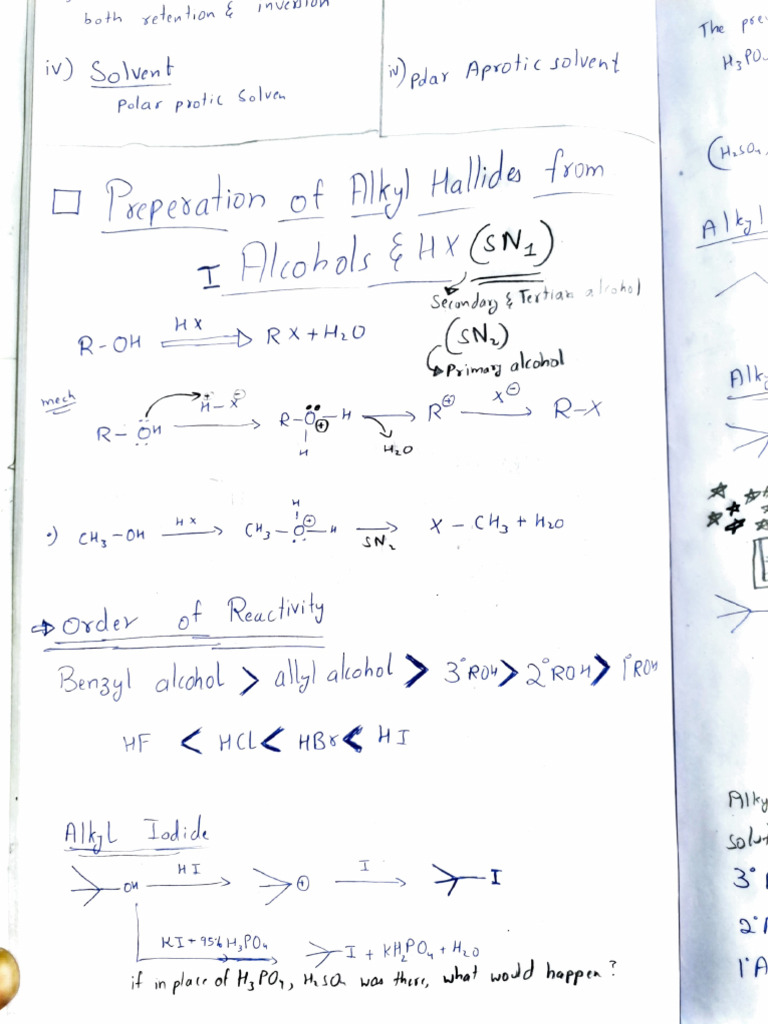 both retention & inversion
iv) Solvent
Polar protic Solven
iv) Polar Aprotic solvent
Preperation of Alkyl Hallides from
I Alcohols & HX (SN1)
Secondary & Tertian alcohol
R-OH HX RX + H2O
(SN2)
Primary alcohol
mech
R-ÖH H-X R-O-H H ⊕ H2O R⊕ X⊖ R-X
•) CH3-OH HX CH3-O-H H ⊕ SN2 X-CH3 + H2O
⇒ Order of Reactivity
Benzyl alcohol > allyl alcohol > 3°ROH > 2°ROH > 1°ROH
HF < HCl < HBr < HI
Alkyl Iodide
OH HI ⊕ I I
KI + 95% H3PO4 I + KH2PO4 + H2O
if in place of H3PO4, H2SO4 was there, what would happen?
The pre
H3PO
(H2SO4,
Alkyl
Alky
Alky
solu
3°
2°
1°A